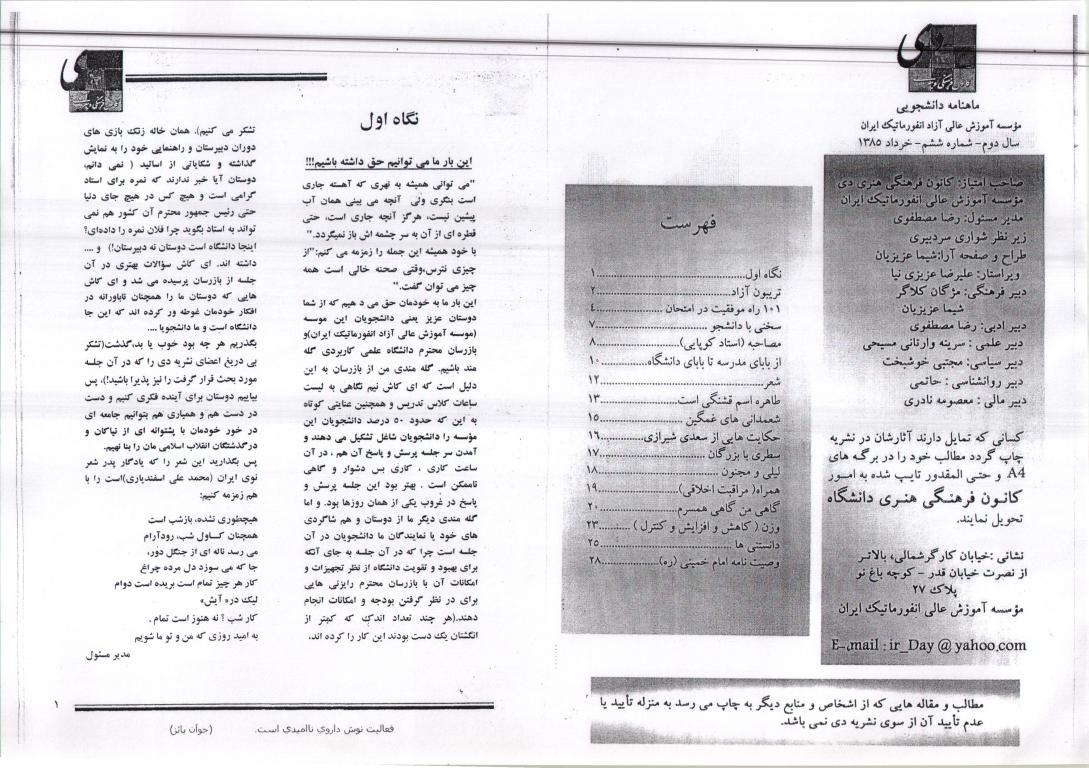 دی
ماهنامه دانشجویی
مؤسسه آموزش عالی آزاد انفورماتیک ایران
سال دوم- شماره ششم- خرداد ۱۳۸۵
صاحب امتیاز: کانون فرهنگی هنری دی
مؤسسه آموزش عالی انفورماتیک ایران
مدیر مسئول: رضا مصطفوی
زیر نظر شورای سردبیری
طراح و صفحه آرا:شیما عزیزیان
ویراستار: علیرضا عزیزی نیا
دبیر فرهنگی: مژگان کلاگر
شیما عزیزیان
دبیر ادبی: رضا مصطفوی
دبیر علمی : سرینه وارتانی مسیحی
دبیر سیاسی: مجتبی خوشبخت
دبیر روانشناسی : حاتمی
دبیر مالی : معصومه نادری
کسانی که تمایل دارند آثارشان در نشریه
چاپ گردد مطالب خود را در برگه های
A4 و حتی المقدور تایپ شده به امور
کانون فرهنگی هنری دانشگاه
تحویل نمایند.
نشانی :خیابان کارگرشمالی، بالاتر
از نصرت خیابان قدر - کوچه باغ نو
پلاک ۲۷
مؤسسه آموزش عالی انفورماتیک ایران
E-mail : ir_Day @ yahoo.com
فهرست
نگاه اول.......................................۱
تریبون آزاد.......................................۲
۱۰۱ راه موفقیت در امتحان .....................۴
سخنی با دانشجو ................................۷
مصاحبه (استاد کوپایی)..........................۸
از بابای مدرسه تا بابای دانشگاه................۱۰
شعر............................................۱۲
طاهره اسم قشنگی است.........................۱۳
شمعدانی های غمگین ..........................۱۵
حکایت هایی از سعدی شیرازی.................۱۶
سطری با بزرگان ...............................۱۷
لیلی و مجنون ..................................۱۸
همراه( مراقبت اخلاقی).........................۱۹
گاهی من گاهی همسرم..........................۲۰
وزن ( کاهش و افزایش و کنترل ) ..............۲۳
دانستنی ها.....................................۲۵
وصیت نامه امام خمینی (ره)....................۲۸
مطالب و مقاله هایی که از اشخاص و منابع دیگر به چاپ می رسد به منزله تأیید یا
عدم تأیید آن از سوی نشریه دی نمی باشد.
نگاه اول
این بار ما می توانیم حق داشته باشیم!!!
"می توانی همیشه به نهری که آهسته جاری
است بنگری ولی آنچه می بینی همان آب
پیشین نیست، هرگز آنچه جاری است، حتی
قطره ای از آن به سر چشمه اش باز نمیگردد."
با خود همیشه این جمله را زمزمه می کنم:"از
چیزی نترس،وقتی صحنه خالی است همه
چیز می توان گفت."
این بار ما به خودمان حق می د هیم که از شما
دوستان عزیز یعنی دانشجویان این موسسه
(موسسه آموزش عالی آزاد انفورماتیک ایران)و
بازرسان محترم دانشگاه علمی کاربردی گله
مند باشیم. گله مندی من از بازرسان به این
دلیل است که ای کاش نیم نگاهی به لیست
ساعات کلاس تدریس و همچنین عنایتی کوتاه
به این که حدود ۵۰ درصد دانشجویان این
مؤسسه را دانشجویان شاغل تشکیل می دهند و
آمدن سر جلسه پرسش و پاسخ آن هم ، در آن
ساعت کاری ، کاری بس دشوار و گاهی
ناممکن است . بهتر بود این جلسه پرسش و
پاسخ در غروب یکی از همان روزها بود. و اما
گله مندی دیگر ما از دوستان و هم شاگردی
های خود یا نمایندگان ما دانشجویان در آن
جلسه است چرا که در آن جلسه به جای آنکه
برای بهبود و تقویت دانشگاه از نظر تجهیزات و
امکانات آن با بازرسان محترم رایزنی هایی
برای در نظر گرفتن بودجه و امکانات انجام
دهند.(هر چند تعداد اندک که کمتر از
انگشتان یک دست بودند این کار را کرده اند،
تشکر می کنیم). همان خاله زنک بازی های
دوران دبیرستان و راهنمایی خود را به نمایش
گذاشته و شکایاتی از اساتید ( نمی دانم،
دوستان آیا خبر ندارند که نمره برای استاد
گرامی است و هیچ کس در هیچ جای دنیا
حتی رئیس جمهور محترم آن کشور هم نمی
تواند به استاد بگوید چرا فلان نمره را داده‌ای؟
اینجا دانشگاه است دوستان نه دبیرستان!) و ....
داشته اند. ای کاش سؤالات بهتری در آن
جلسه از بازرسان پرسیده می شد و ای کاش
هایی که دوستان ما را همچنان ناباورانه در
افکار خودمان غوطه ور کرده اند که این جا
دانشگاه است و ما دانشجویا ....
بگذریم هر چه بود خوب یا بد،گذشت(تشکر
بی دریغ اعضای نشریه دی را که در آن جلسه
مورد بحث قرار گرفت را نیز پذیرا باشید!)، پس
بیاییم دوستان برای آینده فکری کنیم و دست
در دست هم و همیاری هم بتوانیم جامعه ای
در خور خودمان با پشتوانه ای از نیاکان و
درگذشتگان انقلاب اسلامی مان را بنا نهیم.
پس بگذارید این شعر را که یادگار پدر شعر
نوی ایران (محمد علی اسفندیاری)است را با
هم زمزمه کنیم:
هیچطوری نشده، بازشب است
همچنان کساول شب، رودآرام
می رسد ناله ای از جنگل دور،
جا که می سوزد دل مرده چراغ
کار هر چیز تمام است بریده است دوام
لیک در« آیش»
کار شب ؟ نه هنوز است تمام .
به امید روزی که من و تو ما شویم
مدیر مسئول
۱
فعالیت نوش داروی ناامیدی است. (جوآن بائز)